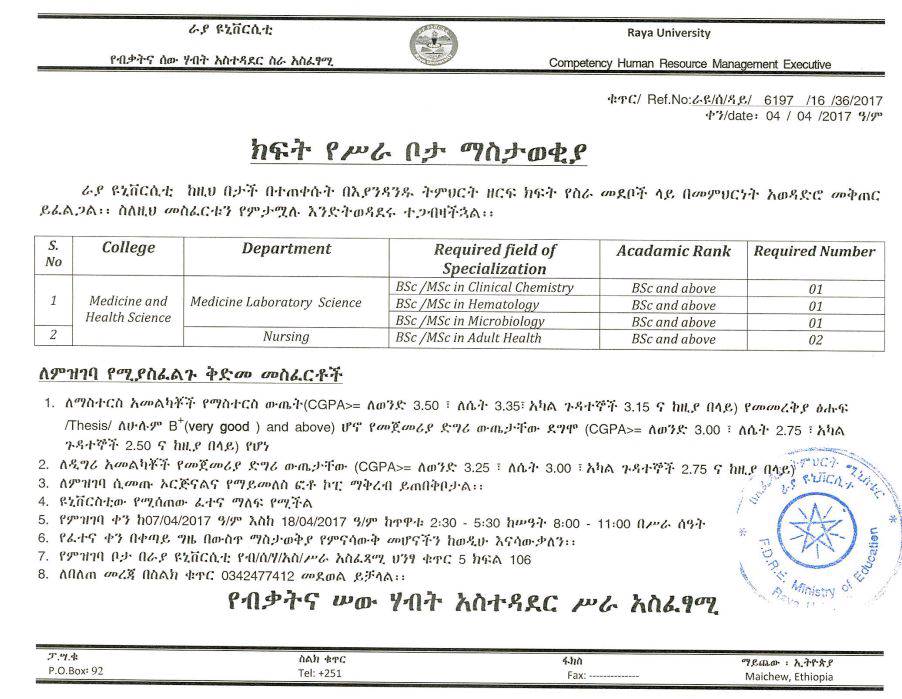 ራያ ዩኒቨርሲቲ
Raya University
የብቃትና ሰው ሃብት አስተዳደር ስራ አስፈፃሚ
Competency Human Resource Management Executive
ቁጥር/ Ref.No:ራዩ/ሰ/ዳይ/ 6197 /16 /36/2017
ቀን/date፡ 04 / 04 /2017 ዓ/ም
ክፍት የሥራ ቦታ ማስታወቂያ
ራያ ዩኒቨርሲቲ ከዚህ በታች በተጠቀሱት በእያንዳንዱ ትምህርት ዘርፍ ክፍት የስራ መደቦች ላይ በመምህርነት አወዳድሮ መቅጠር
ይፈልጋል፡፡ ስለዚህ መስፈርቱን የምታሟሉ እንድትወዳደሩ ተጋብዛችኋል፡፡
S. No College Department Required field of Specialization Acadamic Rank Required Number
1 Medicine and Health Science Medicine Laboratory Science BSc /MSc in Clinical Chemistry BSc and above 01
BSc /MSc in Hematology BSc and above 01
BSc /MSc in Microbiology BSc and above 01
2 Nursing BSc /MSc in Adult Health BSc and above 02
ለምዝገባ የሚያስፈልጉ ቅድመ መስፈርቶች
1. ለማስተርስ አመልካቾች የማስተርስ ውጤት(CGPA>= ለወንድ 3.50 ፣ ለሴት 3.35፣ አካል ጉዳተኞች 3.15 ና ከዚያ በላይ) የመመረቅያ ፅሑፍ
/Thesis/ ለሁሉም B+(very good ) and above) ሆኖ የመጀመሪያ ድግሪ ውጤታቸው ደግሞ (CGPA>= ለወንድ 3.00 ፣ ለሴት 2.75 ፣ አካል
ጉዳተኞች 2.50 ና ከዚያ በላይ) የሆነ
2. ለዲግሪ አመልካቾች የመጀመሪያ ድግሪ ውጤታቸው (CGPA>= ለወንድ 3.25 ፣ ለሴት 3.00 ፣ አካል ጉዳተኞች 2.75 ና ከዚያ በላይ)
3. ለምዝገባ ሲመጡ ኦርጅናልና የማይመለስ ፎቶ ኮፒ ማቅረብ ይጠበቅቦታል፡፡
4. ዩኒቨርስቲው የሚሰጠው ፈተና ማለፍ የሚችል
5. የምዝገባ ቀን ከ07/04/2017 ዓ/ም እስከ 18/04/2017 ዓ/ም ከጥዋቱ 2:30 - 5:30 ከሠዓት 8:00 - 11:00 በሥራ ሰዓት
6. የፈተና ቀን በቀጣይ ግዜ በውስጥ ማስታወቅያ የምናሳውቅ መሆናችን ከወዲሁ እናሳውቃለን፡፡
7. የምዝገባ ቦታ በራያ ዩኒቨርሲቲ የብ/ሰ/ሃ/አስ/ሥራ አስፈጻሚ ህንፃ ቁጥር 5 ክፍል 106
8. ለበለጠ መረጃ በስልክ ቁጥር 0342477412 መደወል ይቻላል፡፡
ትምህርት ሚኒስቴር
ራያ ዩኒቨርሲቲ
F.D.R.E. Ministry of Education
Raya
የብቃትና ሠው ሃብት አስተዳደር ሥራ አስፈፃሚ
ፓ.ሣ.ቁ
P.O.Box፡ 92
ስልክ ቁጥር
Tel: +251
ፋክስ
Fax: --------------
ማይጨው ፡ ኢትዮጵያ
Maichew, Ethiopia